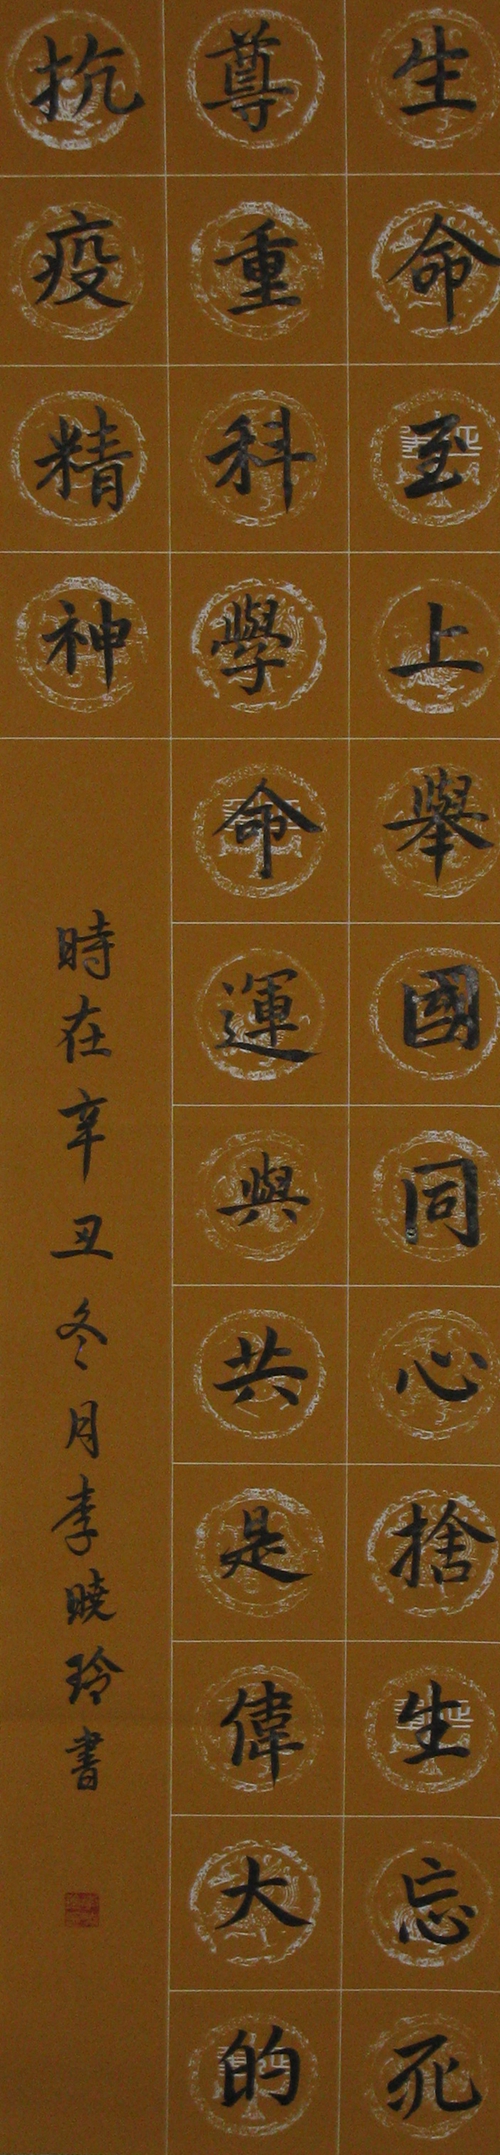 生命至上舉國同心捨生忘死
尊重科學命運與共是偉大的
抗疫精神
時在辛丑冬月李曉玲書